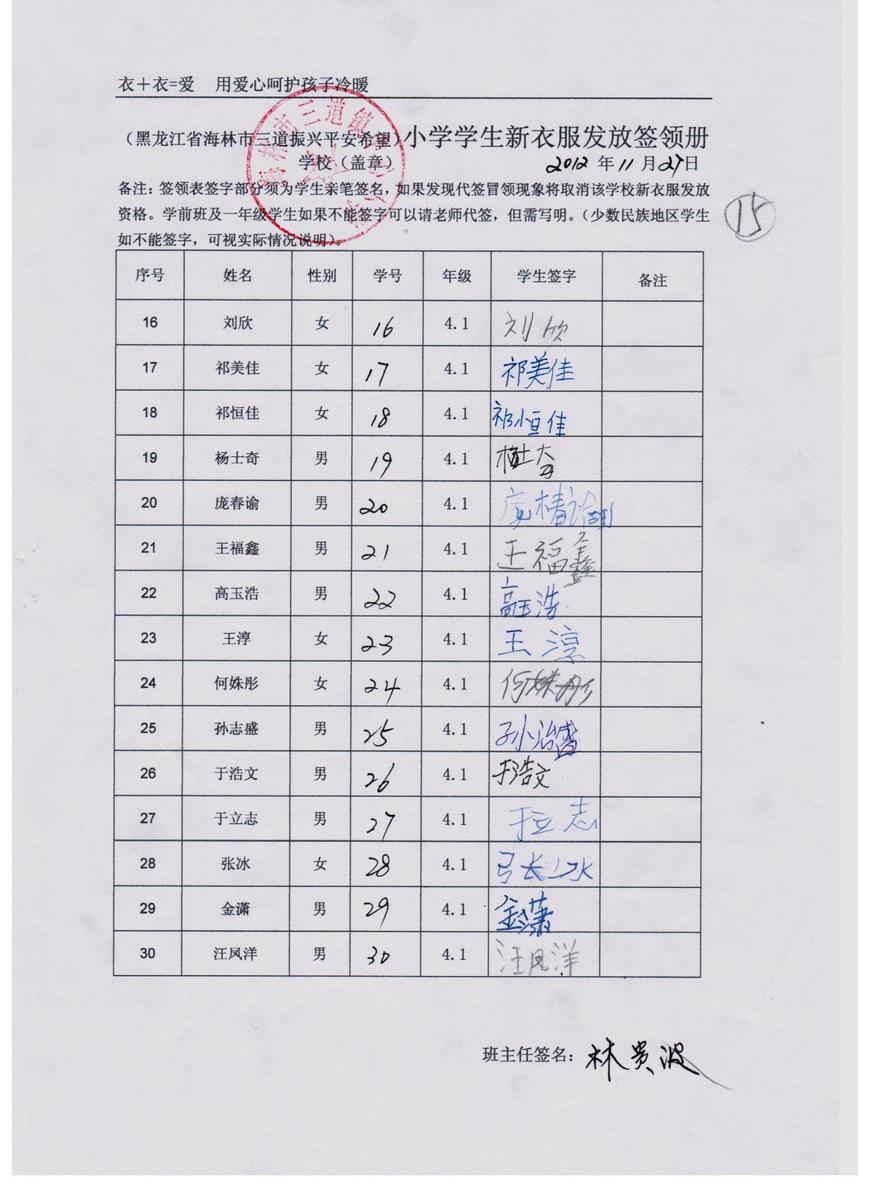 衣＋衣=爱 用爱心呵护孩子冷暖
（黑龙江省海林市三道振兴平安希望）小学学生新衣服发放签领册
学校（盖章） 2012 年 11 月 27 日
备注：签领表签字部分须为学生亲笔签名，如果发现代签冒领现象将取消该学校新衣服发放
资格。学前班及一年级学生如果不能签字可以请老师代签，但需写明。（少数民族地区学生
如不能签字，可视实际情况说明）。
15
序号 姓名 性别 学号 年级 学生签字 备注
16 刘欣 女 16 4.1 刘欣
17 祁美佳 女 17 4.1 祁美佳
18 祁恒佳 女 18 4.1 祁恒佳
19 杨士奇 男 19 4.1 杨士奇
20 庞春谕 男 20 4.1
21 王福鑫 男 21 4.1 王福鑫
22 高玉浩 男 22 4.1 高玉浩
23 王淳 女 23 4.1 王淳
24 何姝彤 女 24 4.1 何姝彤
25 孙志盛 男 25 4.1 孙治盛
26 于浩文 男 26 4.1 于浩文
27 于立志 男 27 4.1 于立志
28 张冰 女 28 4.1 张冰
29 金潇 男 29 4.1 金潇
30 汪凤洋 男 30 4.1 汪凤洋
班主任签名：林贵波